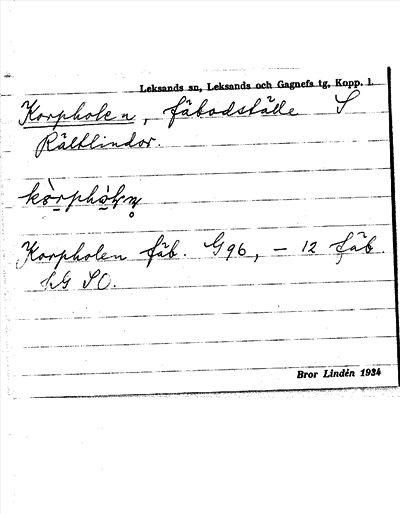 Leksands sn, Leksands och Gagnefs tg, Kopp. l.
Korpholen, fäbodställe S
Rältlindor.
Korpholen fäb. G96, – 12 fäb.
Bror Lindén 1934